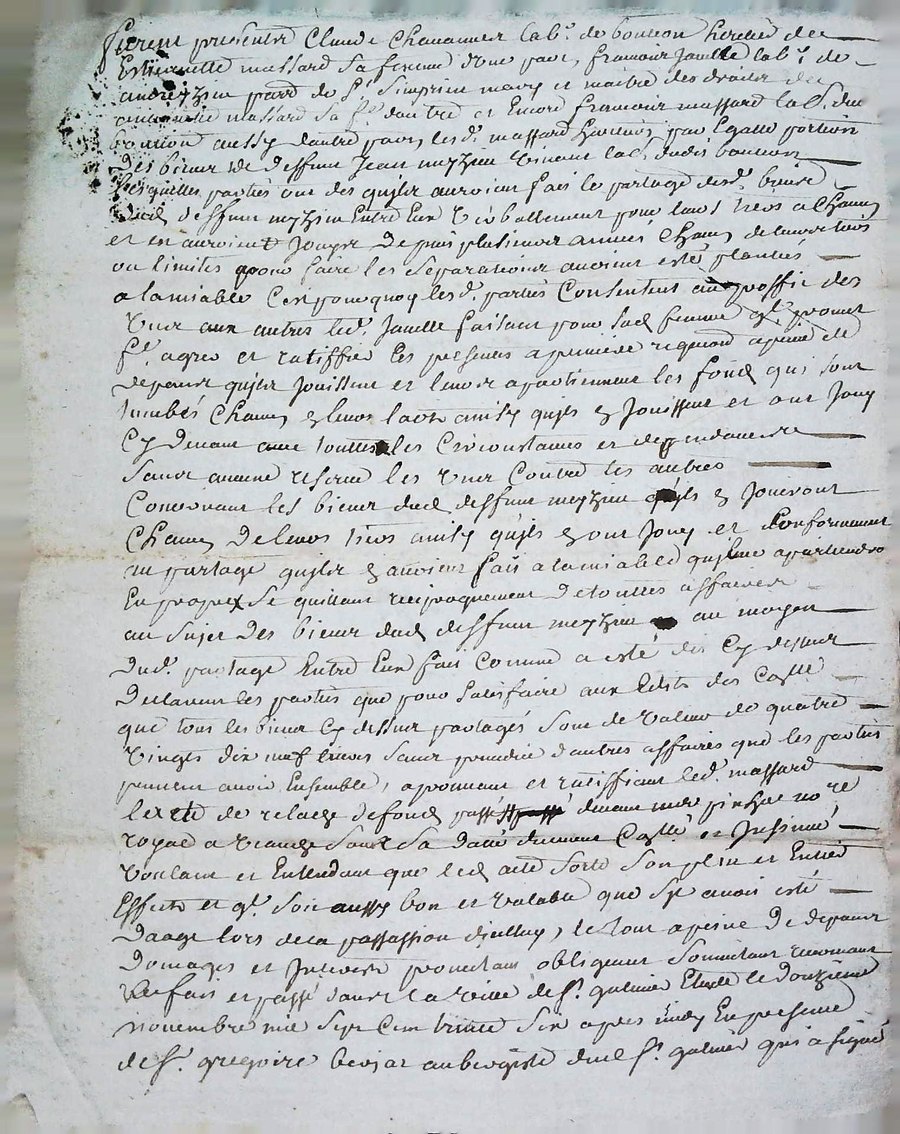 furent presents Claude Chavannes lab.r de bouteon heretié de
Estiennette massard sa femme d'une part, francois Janelle lab.r de
andrezieu parr de s.t Simprin mary et maitre des droits de
massard sa f.e dautre et Encore francois massard lab.r du
bouteon aussy dautre part, lesd. massard heritiers par Egalle portion
des biens de deffunt Jean meyzieu vivant lab.r dudit bouteon
lesquelles parties ont dit quils auroient fait le partage desd. biens
dud deffunt meyzieu Entre Eux verballement pour leurs tiers a Chacun
et en auroient Jouyr depuis plusieurs années Chacun de leurs tiers
ou limites pour faire les separations auroient esté plantés
a lamiable C'est pourquoy lesd. parties Consentent au proffit des
uns aux autres led. Janelle faisant pour sad femme q.l promet
f.e agreer et ratiffier les presentes a premiere requisition a peine de
depens quils Jouissent et leurs apartiennent les fonds qui sont
tumbés Chacun a leurs lots ainsy quils en Jouissent et ont Jouy
Cy devant avec touttes les Circonstances et deppendances
sans aucune reserve les uns Contre les autres
Concernant les biens dud deffunt meyzieu quils en Jouiront
Chacun de leurs tiers ainsy quils en ont Jouy et Conformement
au partage quils en auroient fait a lamiable quils apartiendra
En propre se quittant reciproquement de touttes affaires
au sujet des biens dud deffunt meyzieu au moyen
dud. partage Entre Eux fait comme a esté dit Cy dessus
declarent les parties que pour satisfaire aux Edits des Con.lle
que tous les biens Cy dessus partagés sont de valeur de quatre
vingts dix neuf livres sans prejudice d'autres affaires que les parties
peuvent avoir Ensemble, aprouvant et ratiffiant led. massard
lexte de relache de fonds passé devant me pinhac no.re
royal a veauche sous sa datte deument Con.llé et Insinué
voulant et Entendant que led acte sorte son plein et Entier
Effects et q.l soit aussy bon et valable que s'il avoit esté
daage lors de la passassion dicelluy, le tout a peine de depens
domages et Interests promettant obligeant soumettant renonceant
fait et passé dans la ville de s.t galmier Etude le douzieme
novembre mil sept Cent trente six apres midy En presence
de s.r gregoire berjat aubergiste dud s.t galmier qui a signé